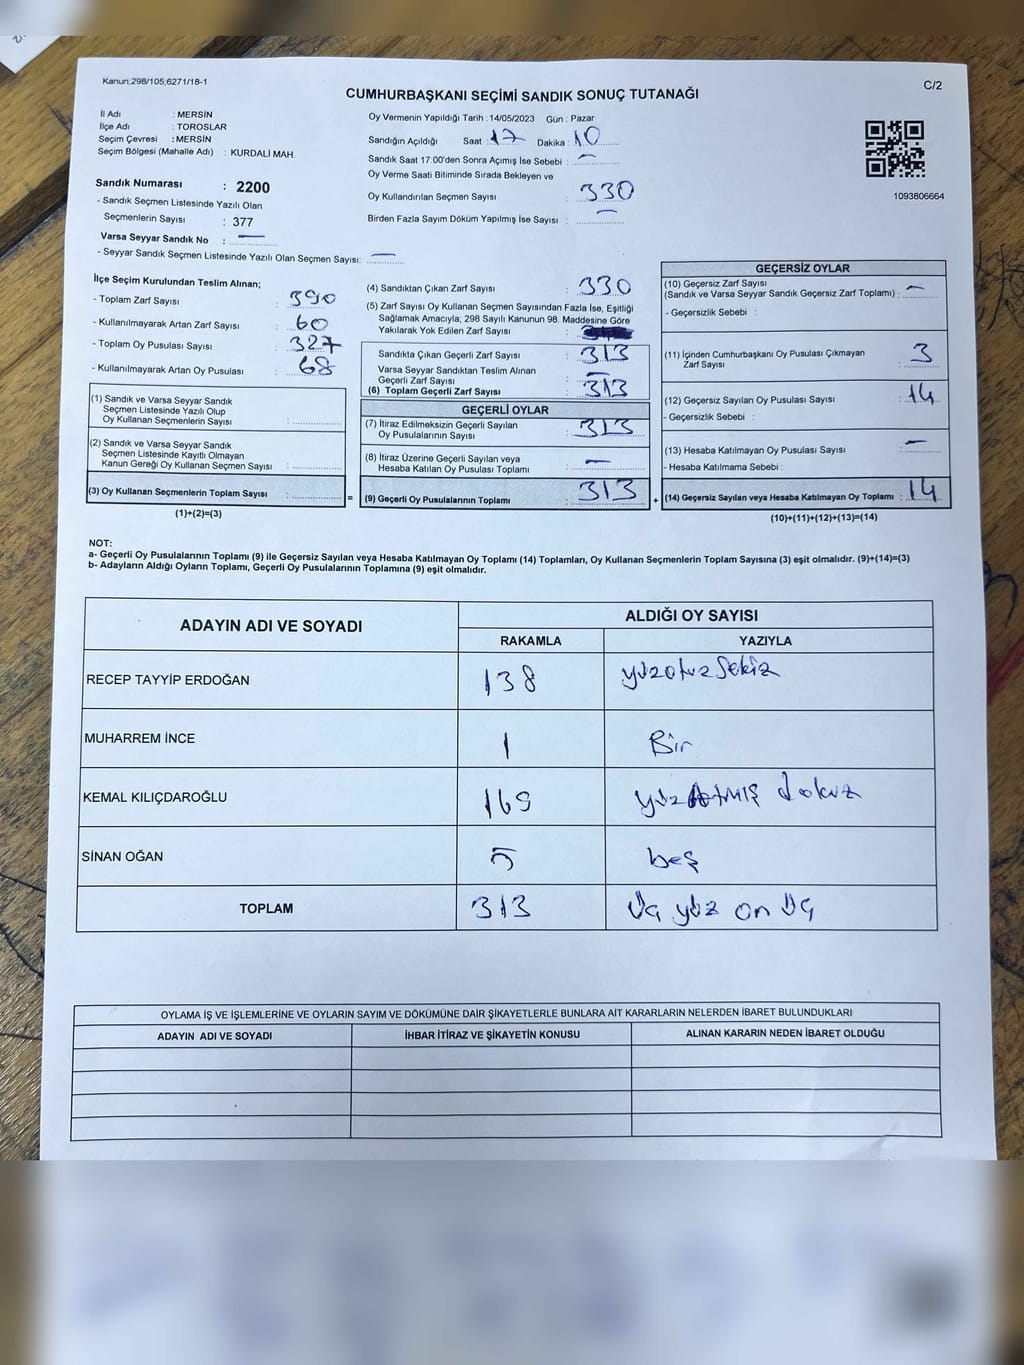 Kanun;298/105;6271/18-1
C/2
CUMHURBAŞKANI SEÇİMİ SANDIK SONUÇ TUTANAĞI
İl Adı : MERSİN
İlçe Adı : TOROSLAR
Seçim Çevresi : MERSİN
Seçim Bölgesi (Mahalle Adı) : KURDALİ MAH.
Oy Vermenin Yapıldığı Tarih : 14/05/2023 Gün : Pazar
Sandığın Açıldığı Saat : 17 Dakika : 10
Sandık Saat 17.00'den Sonra Açımış İse Sebebi : —
Oy Verme Saati Bitiminde Sırada Bekleyen ve
Oy Kullandırılan Seçmen Sayısı : 330
Birden Fazla Sayım Döküm Yapılmış İse Sayısı : —
1093806664
Sandık Numarası : 2200
- Sandık Seçmen Listesinde Yazılı Olan
Seçmenlerin Sayısı : 377
Varsa Seyyar Sandık No : —
- Seyyar Sandık Seçmen Listesinde Yazılı Olan Seçmen Sayısı: —
İlçe Seçim Kurulundan Teslim Alınan;
- Toplam Zarf Sayısı : 390
- Kullanılmayarak Artan Zarf Sayısı : 60
- Toplam Oy Pusulası Sayısı : 327
- Kullanılmayarak Artan Oy Pusulası : 68
(1) Sandık ve Varsa Seyyar Sandık
Seçmen Listesinde Yazılı Olup
Oy Kullanan Seçmenlerin Sayısı :
(2) Sandık ve Varsa Seyyar Sandık
Seçmen Listesinde Kayıtlı Olmayan
Kanun Gereği Oy Kullanan Seçmen Sayısı :
(3) Oy Kullanan Seçmenlerin Toplam Sayısı :
(1)+(2)=(3)
(4) Sandıktan Çıkan Zarf Sayısı : 330
(5) Zarf Sayısı Oy Kullanan Seçmen Sayısından Fazla İse, Eşitliği
Sağlamak Amacıyla; 298 Sayılı Kanunun 98. Maddesine Göre
Yakılarak Yok Edilen Zarf Sayısı :
Sandıkta Çıkan Geçerli Zarf Sayısı : 313
Varsa Seyyar Sandıktan Teslim Alınan
Geçerli Zarf Sayısı : —
(6) Toplam Geçerli Zarf Sayısı : 313
GEÇERLİ OYLAR
(7) İtiraz Edilmeksizin Geçerli Sayılan
Oy Pusulalarının Sayısı : 313
(8) İtiraz Üzerine Geçerli Sayılan veya
Hesaba Katılan Oy Pusulası Toplamı : —
= (9) Geçerli Oy Pusulalarının Toplamı : 313 +
GEÇERSİZ OYLAR
(10) Geçersiz Zarf Sayısı
(Sandık ve Varsa Seyyar Sandık Geçersiz Zarf Toplamı) : —
- Geçersizlik Sebebi :
(11) İçinden Cumhurbaşkanı Oy Pusulası Çıkmayan
Zarf Sayısı : 3
(12) Geçersiz Sayılan Oy Pusulası Sayısı : 14
- Geçersizlik Sebebi :
(13) Hesaba Katılmayan Oy Pusulası Sayısı : —
- Hesaba Katılmama Sebebi :
(14) Geçersiz Sayılan veya Hesaba Katılmayan Oy Toplamı : 14
(10)+(11)+(12)+(13)=(14)
NOT:
a- Geçerli Oy Pusulalarının Toplamı (9) ile Geçersiz Sayılan veya Hesaba Katılmayan Oy Toplamı (14) Toplamları, Oy Kullanan Seçmenlerin Toplam Sayısına (3) eşit olmalıdır. (9)+(14)=(3)
b- Adayların Aldığı Oyların Toplamı, Geçerli Oy Pusulalarının Toplamına (9) eşit olmalıdır.
ADAYIN ADI VE SOYADI
ALDIĞI OY SAYISI
RAKAMLA YAZIYLA
RECEP TAYYİP ERDOĞAN 138 yüzotuzsekiz
MUHARREM İNCE 1 Bir
KEMAL KILIÇDAROĞLU 169 yüzAtmış dokuz
SİNAN OĞAN 5 beş
TOPLAM 313 Üç yüz on üç
OYLAMA İŞ VE İŞLEMLERİNE VE OYLARIN SAYIM VE DÖKÜMÜNE DAİR ŞİKAYETLERLE BUNLARA AİT KARARLARIN NELERDEN İBARET BULUNDUKLARI
ADAYIN ADI VE SOYADI İHBAR İTİRAZ VE ŞİKAYETİN KONUSU ALINAN KARARIN NEDEN İBARET OLDUĞU